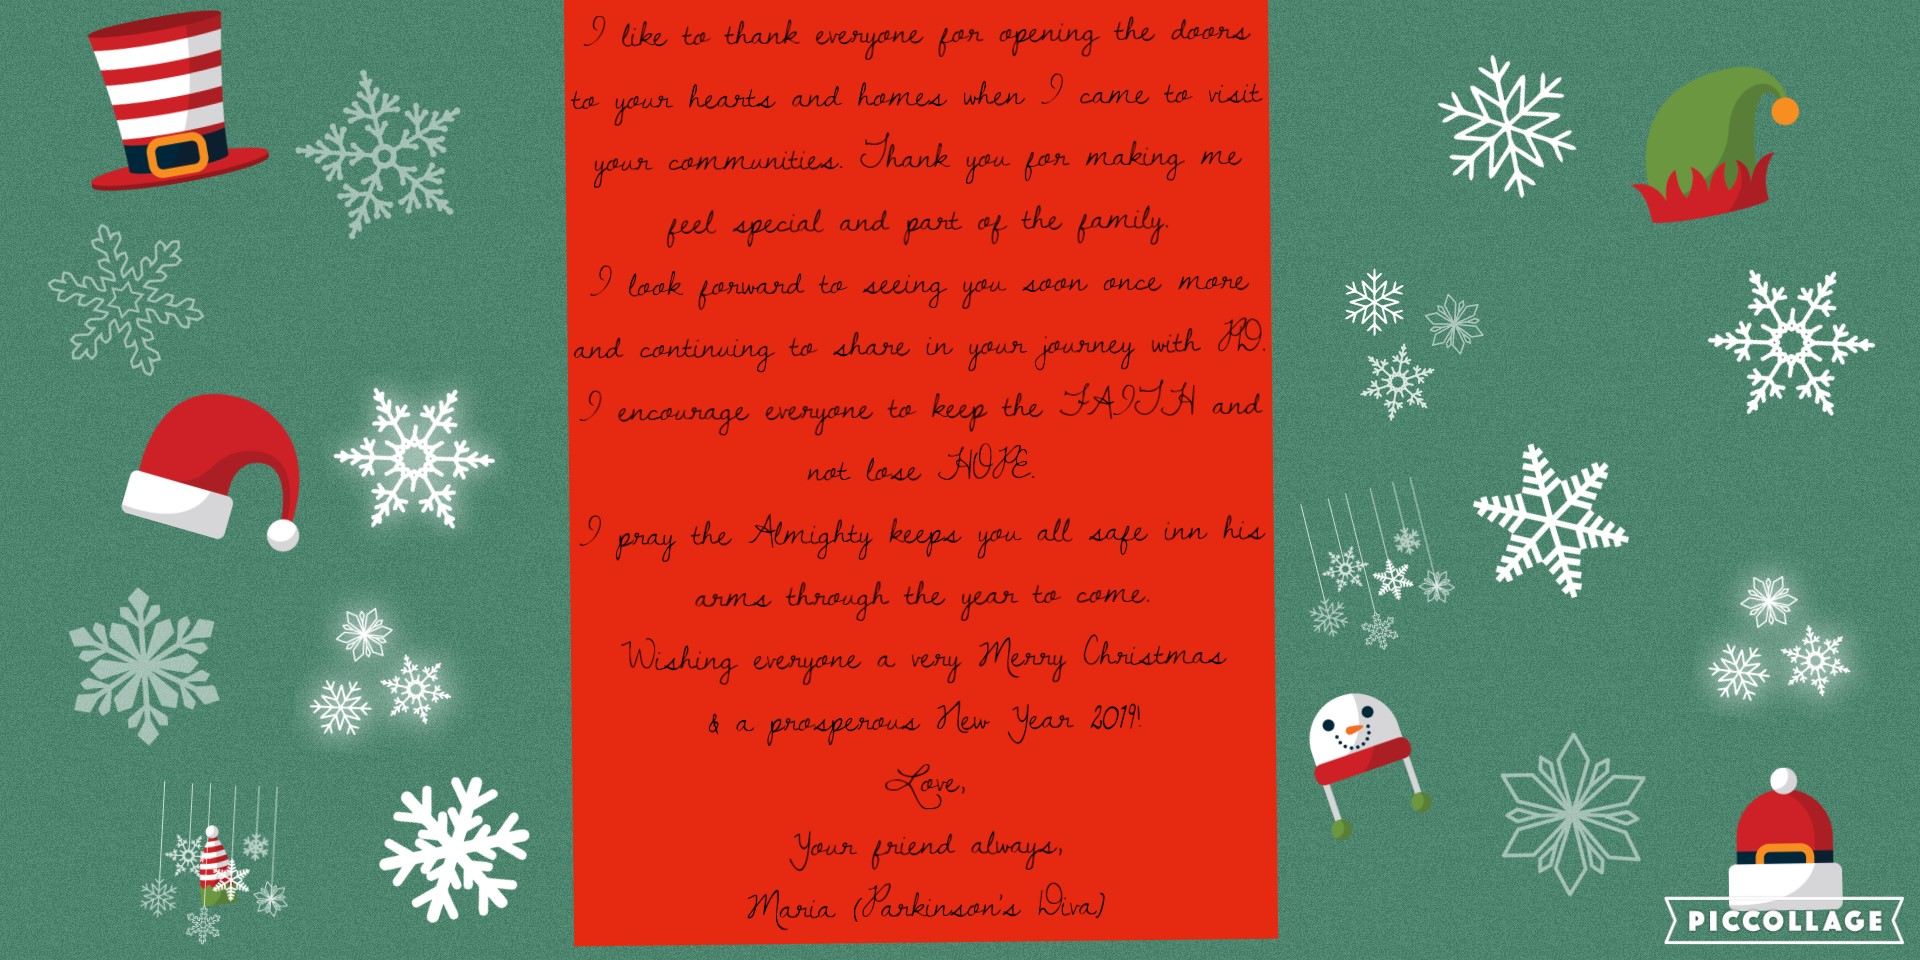 I like to thank everyone for opening the doors
to your hearts and homes when I came to visit
your communities. Thank you for making me
feel special and part of the family.
I look forward to seeing you soon once more
and continuing to share in your journey with PD.
I encourage everyone to keep the FAITH and
not lose HOPE.
I pray the Almighty keeps you all safe inn his
arms through the year to come.
Wishing everyone a very Merry Christmas
& a prosperous New Year 2019!
Love,
Your friend always,
Maria (Parkinson's Diva)
PICCOLLAGE